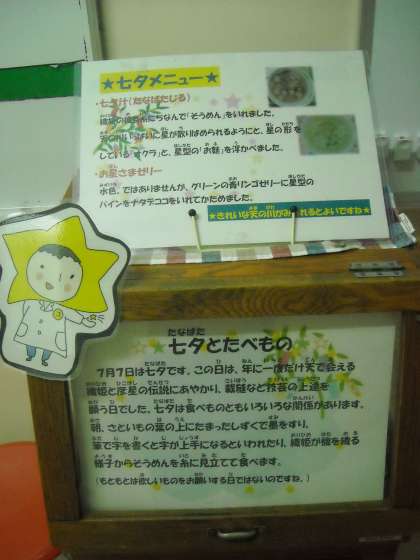 ★七夕メニュー★
・七夕汁(たなばたじる)
織姫の織糸にちなんで「そうめん」をいれました。
天の川いっぱいに星が散りばめられるようにと、星の形を
している「オクラ」と、星型の「お麩」を浮かべました。
・お星さまゼリー
水色、ではありませんが、グリーンの青リンゴゼリーに星型の
パインをナタデココをいれてかためました。
★きれいな天の川がみられるとよいですね★
七夕とたべもの
7月7日は七夕です。この日は、年に一度だけ天で会える
織姫と彦星の伝説にあやかり、裁縫など技芸の上達を
願う日でした。七夕は食べものともいろいろな関係があります。
朝、さといもの葉の上にたまったしずくで墨をすり、
筆で字を書くと字が上手になるといわれたり、織姫が機を織る
様子からそうめんを糸に見立てて食べます。
(もともとは欲しいものをお願いする日ではないのですね。)